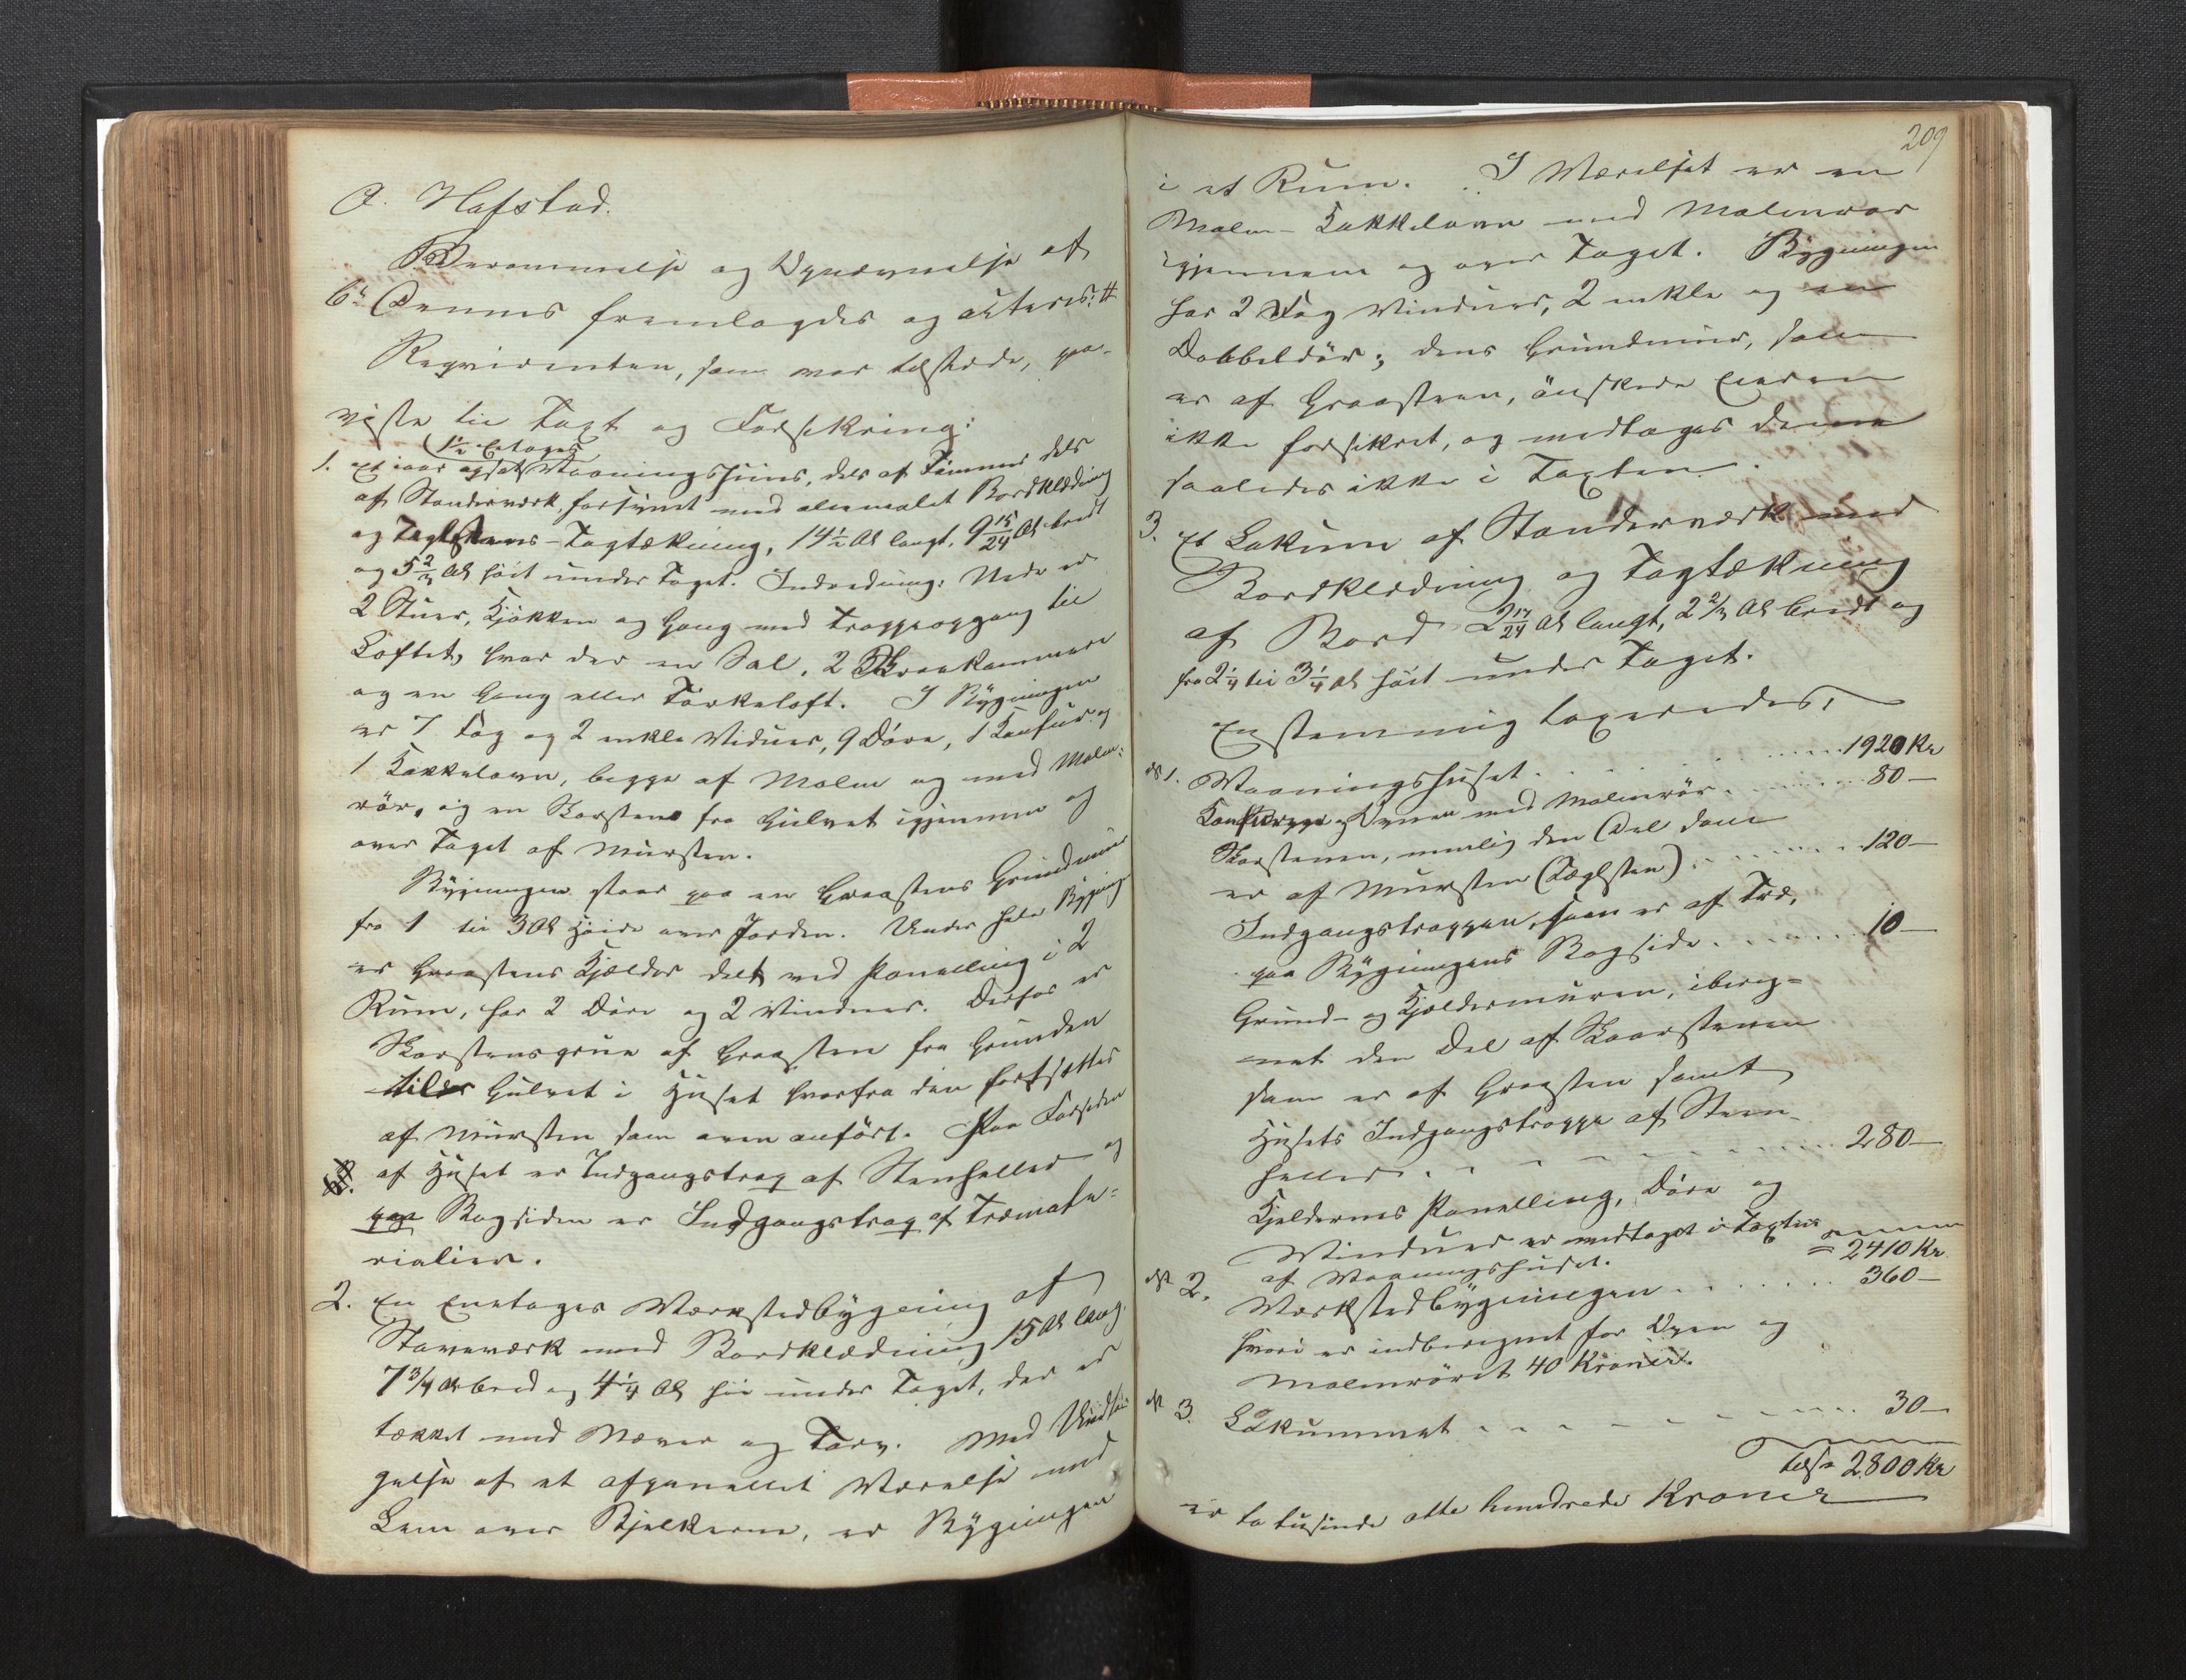 O. Hafstad.
Berammelse og Opnævnelse af
6te Dennes fremlagdes og acteres: #
Reqvirenten, som var tilstede, paa-
viste til Taxt og Forsikring:
1½ Etages
1. et iaar opsat Vaaningshuus, dels af Tømmer dels
af Standerværk, forsynet med oliemalet Bordklædning
og Teglsteens-Tagtækning, 14½ Al langt, 9 15/24 Al bredt
og 5 2/3 Al høit under Taget. Indredning: Nede er
2 Stuer, Kjøkken og Gang med Trappeopgang til
Loftet, hvor der er Sal, 2 Skraakammere
og en Gang eller Tørkeloft. I Bygningen
er 7 Fag og 2 enkle Viduer, 9 Døre, 1 Komfur og
1 Kakkelovn, begge af Malm og med Malm-
rør, og en Skorsten fra Gulvet igjennem og
over Taget af Mursten.
Bygningen staar paa en Graastens Grundmur
fra 1 til 3 Al Høide over Jorden. Under hele Bygning
er Graastens Kjælder delt ved Panelling i 2
Rum, har 2 Døre og 2 Vinduer. Derfor er
Skorstensgrue af Graasten fra Grunden
til Gulvet i Huset hvorfra den fortsættes
af Mursten som oven anført. Paa Forsiden
af Huset er Indgangstrap af Stenheller og
paa Bagsiden er Indgangstrap af Træmate-
rialier.
2. En Enetages Værkstedbygning af
Stavværk med Bordklædning 15 Al lang,
7¾ Al bred og 4¼ Al høi under Taget, der er
tækket med Næver og Torv. Med Undta-
gelse af et afpanellet Værelse med
Lem over Bjelkerne, er Bygningen
209
i et Rum. I Værelset er en
Malm-Kakkelovn med Malmrør
igjennem og over Taget. Bygningen
har 2 Fag Vinduer, 2 enkle og en
Dobbeldør; dens Grundmur, som
er af Graasteen, ønskede Eieren
ikke forsikret, og medtages denne
saaledes ikke i Taxten.
3. Et Lokum af Standerværk med
Bordklædning og Tagtækning
af Bord 2 17/24 Al langt, 2 2/3 Al bredt og
fra 2¼ til 3¼ Al høit under Taget.
Enstemmig taxeredes,
No 1. Vaaningshuset . . . . 1920 Kr
Komfuret og Ovnen med Malmrør . . . 80 —
Skorstenen, nemlig den Del som
er af Mursten (Teglsten) . . . . 120 —
Indgangstrappen, som er af Træ,
paa Bygningens Bagside . . . . 10 —
Grund- og Kjældermuren, ibereg-
net den Del af Skorstenen
som er af Graasten samt
Husets Indgangstrappe af Steen-
heller . . . . 280 —
Kjelderens Panelling, Døre og
Vinduer er medtaget i Taxten
af Vaaningshuset. = 2410 Kr
No 2. Værkstedbygningen . . . . 360 —
hvori er indberegnet for Ovn og
Malmrøret 40 Kroner.
No 3. Lokummet . . . . 30 —
tils. 2800 Kr
er to tusinde otte hundrede Kroner